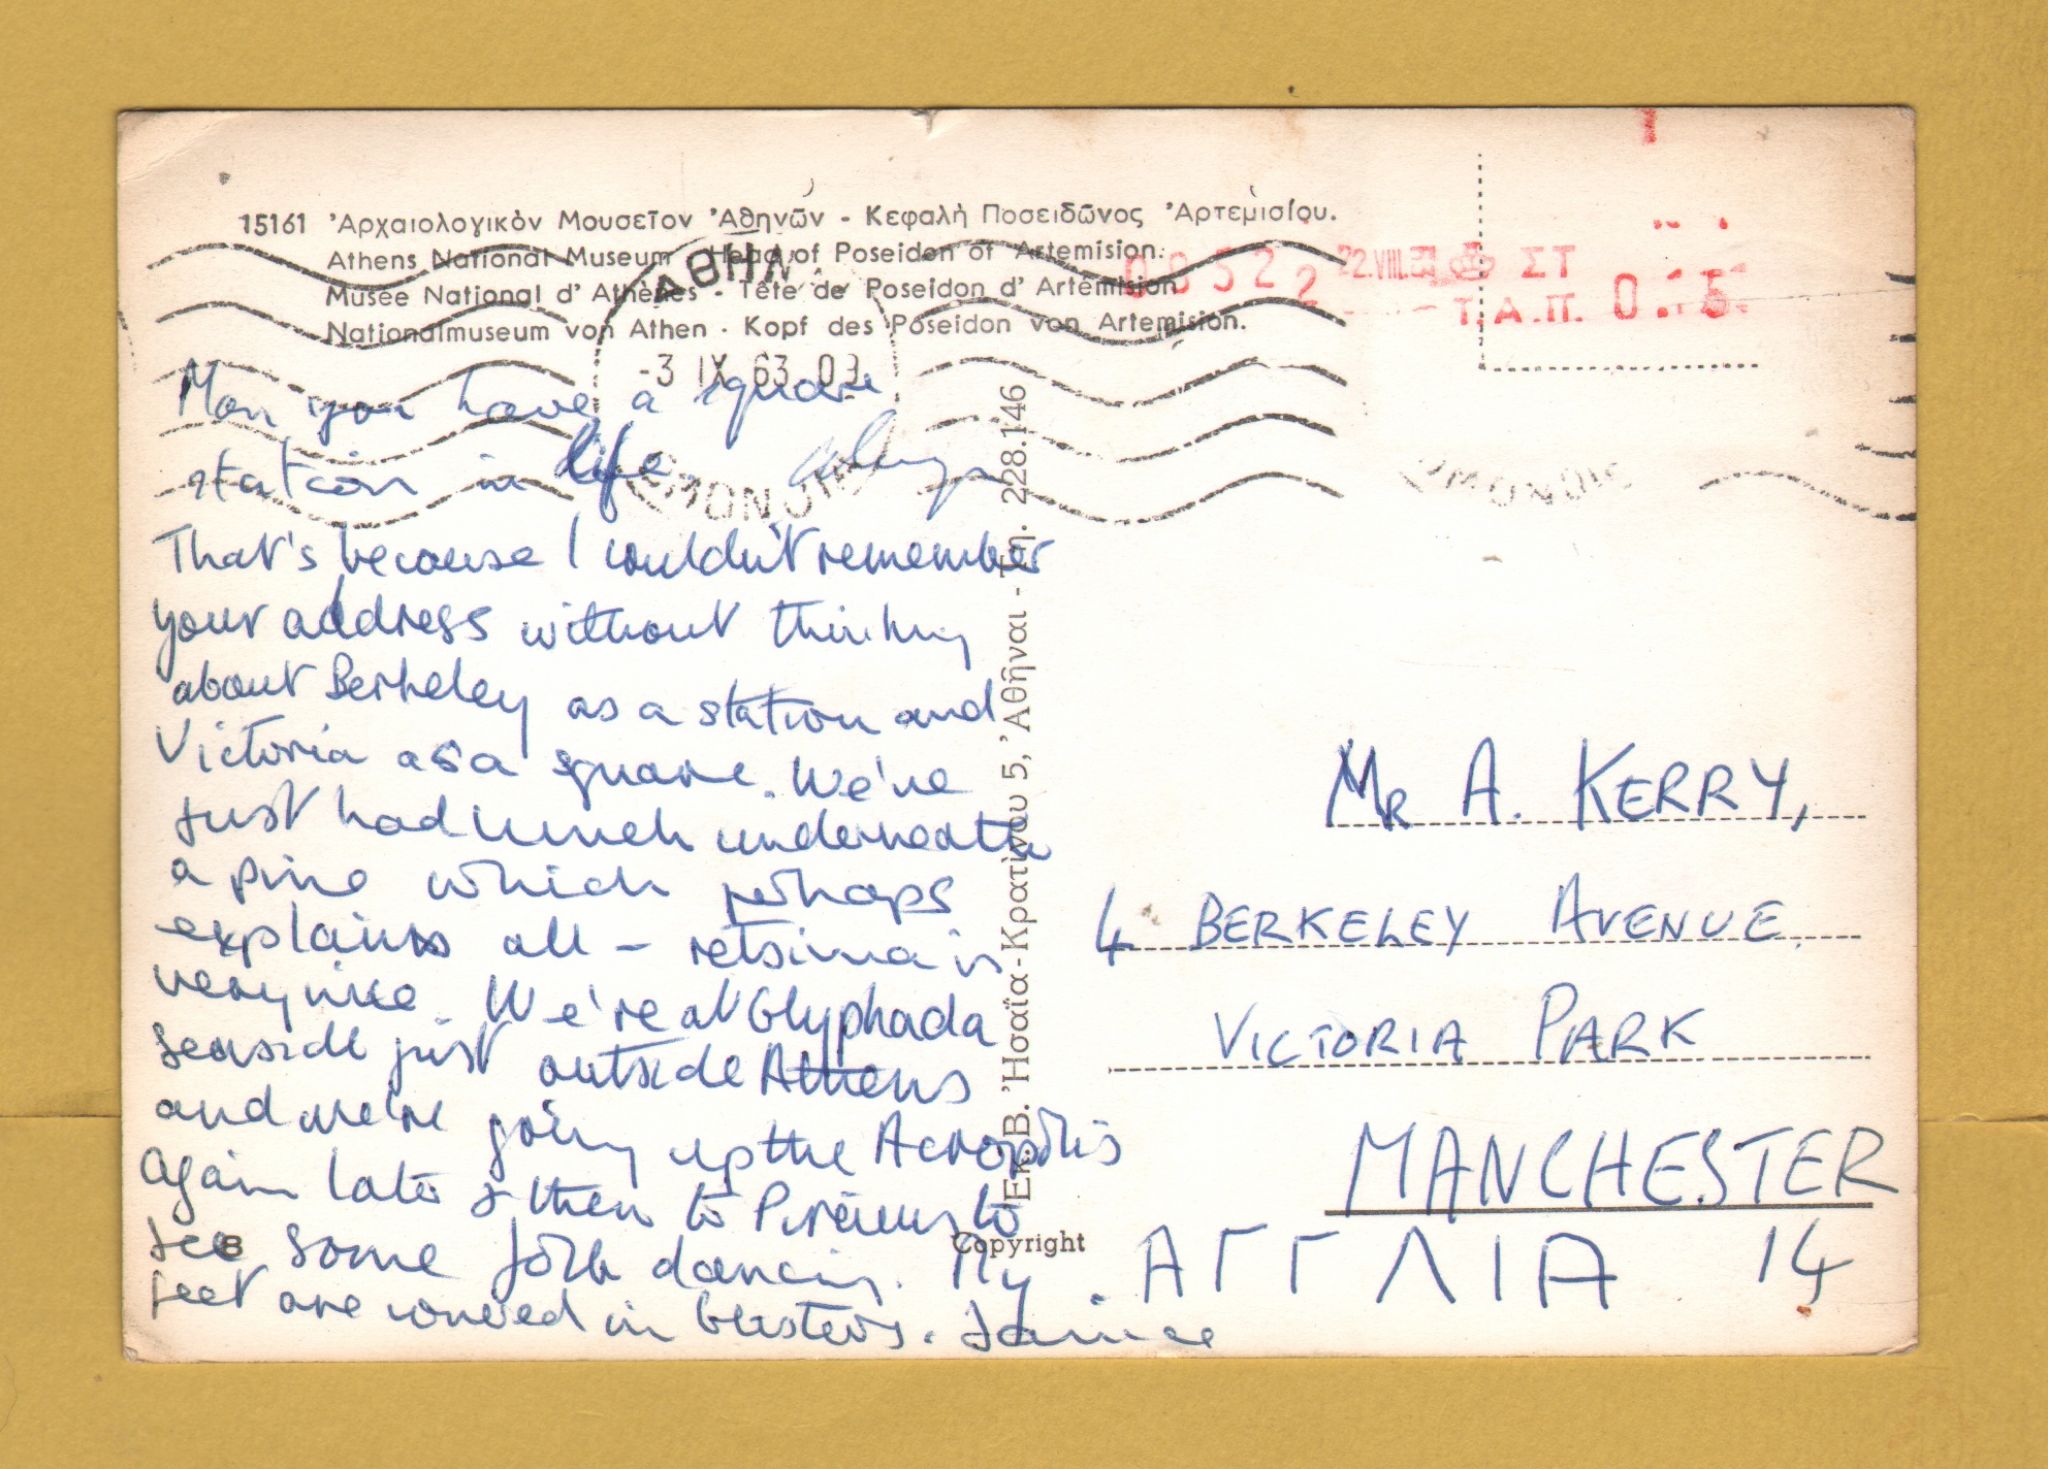 15161 Ἀρχαιολογικὸν Μουσεῖον Ἀθηνῶν - Κεφαλὴ Ποσειδῶνος Ἀρτεμισίου.
Athens National Museum - Head of Poseidon of Artemision.
Musée National d' Athènes - Tête de Poseidon d' Artémision
Nationalmuseum von Athen - Kopf des Poseidon von Artemision.
ΑΘΗΝΑΙ
-3 IX 63 09
ΟΜΟΝΟΙΑ
00522 22.VIII. ΣΤ
Τ.Α.Π. 0.
ΟΜΟΝΟΙΑ
Man you have a square
station in life.
That's because I couldn't remember
your address without thinking
about Berkeley as a station and
Victoria as a square. We've
just had lunch underneath
a pine which perhaps
explains all – retsina is
very nice. We're at Glyphada
seaside just outside Athens
and we're going up the Acropolis
again later & then to Piraeus to
see some folk dancing. My
feet are covered in blisters. Janice
Ἐκ. Β. Ἡσαΐα - Κρατίνου 5, Ἀθῆναι - Τη. 228.146
B
Copyright
Mr A. KERRY,
4 BERKELEY AVENUE
VICTORIA PARK
MANCHESTER
14
ΑΓΓΛΙΑ